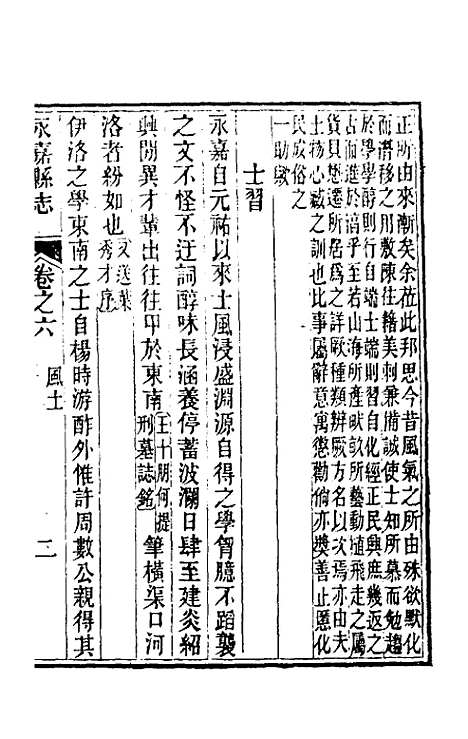 正所由來漸矣余莅此邦思今昔風氣之所由殊欲默化
而潛移之用敷陳往轍美刺兼備誠使士知所慕而勉趨
於學學醇則行自端士端則習自化經正民興庶幾返之
古而進於淳乎至若山海所產畎畝所藝動植飛走之屬
貨貝懋遷所居為之詳厥種類辨厥方名以次焉亦由夫
土物心臧之訓也比事屬辭意寓懲勸倘亦獎善止慝化
民成俗之
一助歟
士習
永嘉自元祐以來士風浸盛淵源自得之學胷臆不蹈襲
之文不怪不迂詞醇味長涵養停蓄波瀾日肆至建炎紹
興閒異才輩出往往甲於東南王十朋何提刑墓誌銘筆橫渠口河
洛者紛如也又送葉秀才序
伊洛之學東南之士自楊時游酢外惟許周數公親得其
永嘉縣志
卷之六
風土
三